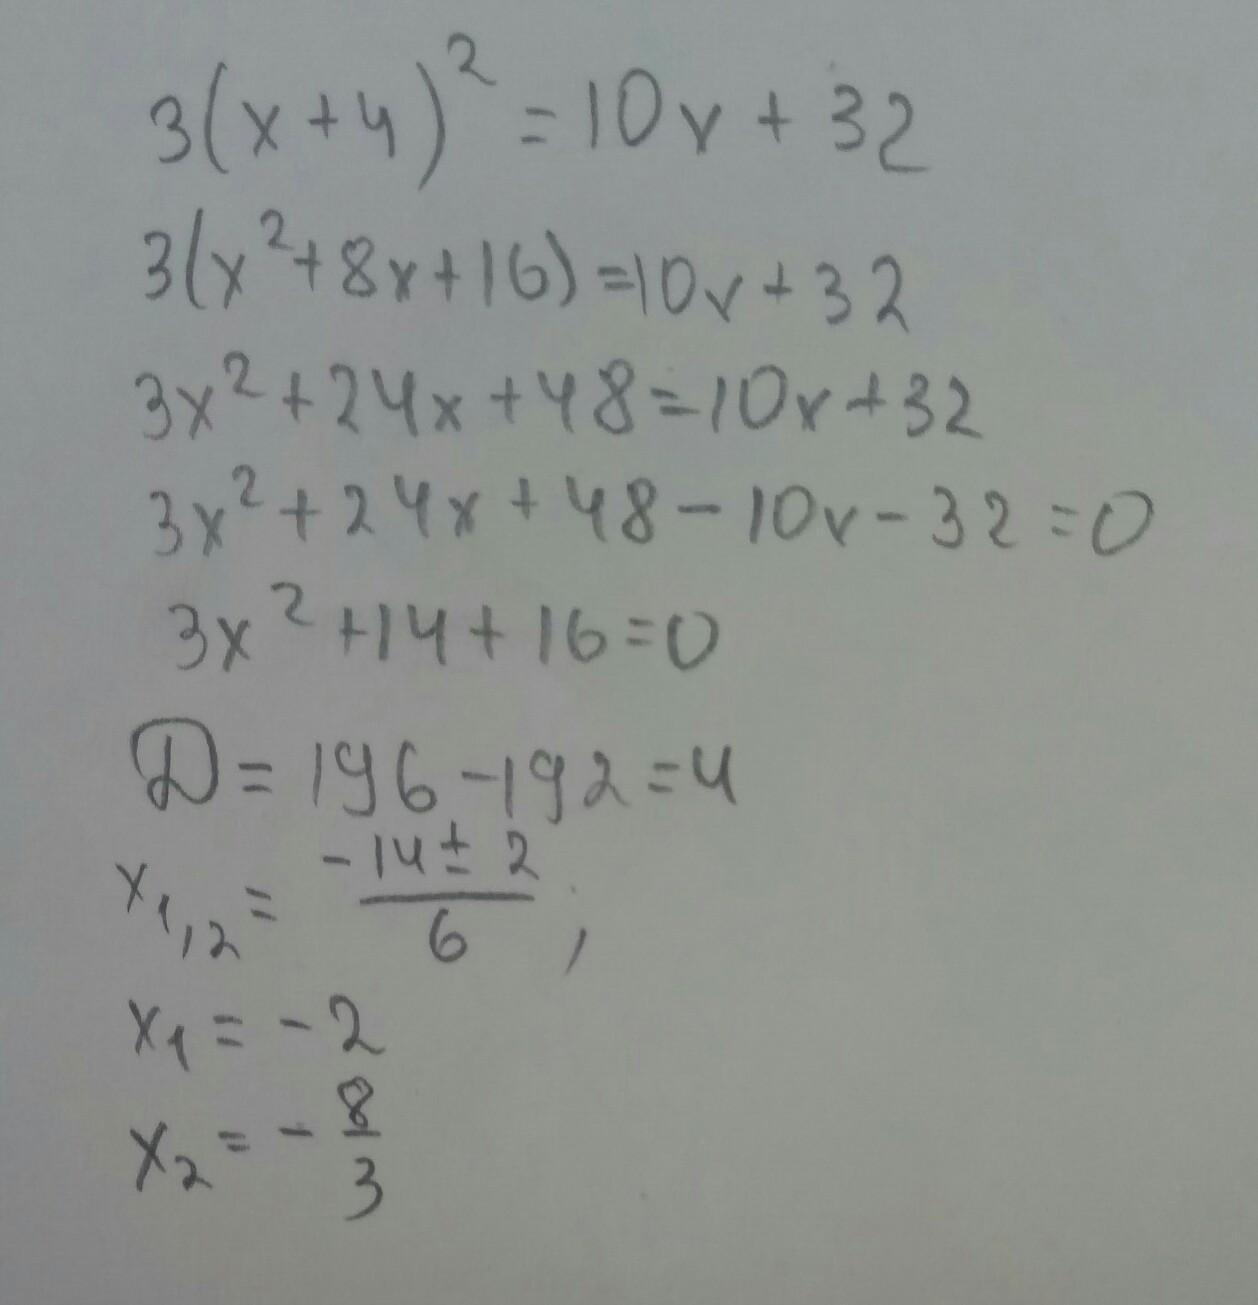 3(x+4)² = 10x + 32
3(x²+8x+16)=10x+32
3x²+24x+48=10x+32
3x²+24x+48-10x-32=0
3x²+14+16=0
D = 196-192=4
x₁,₂ = (-14±2)/6 ;
x₁ = -2
x₂ = -8/3